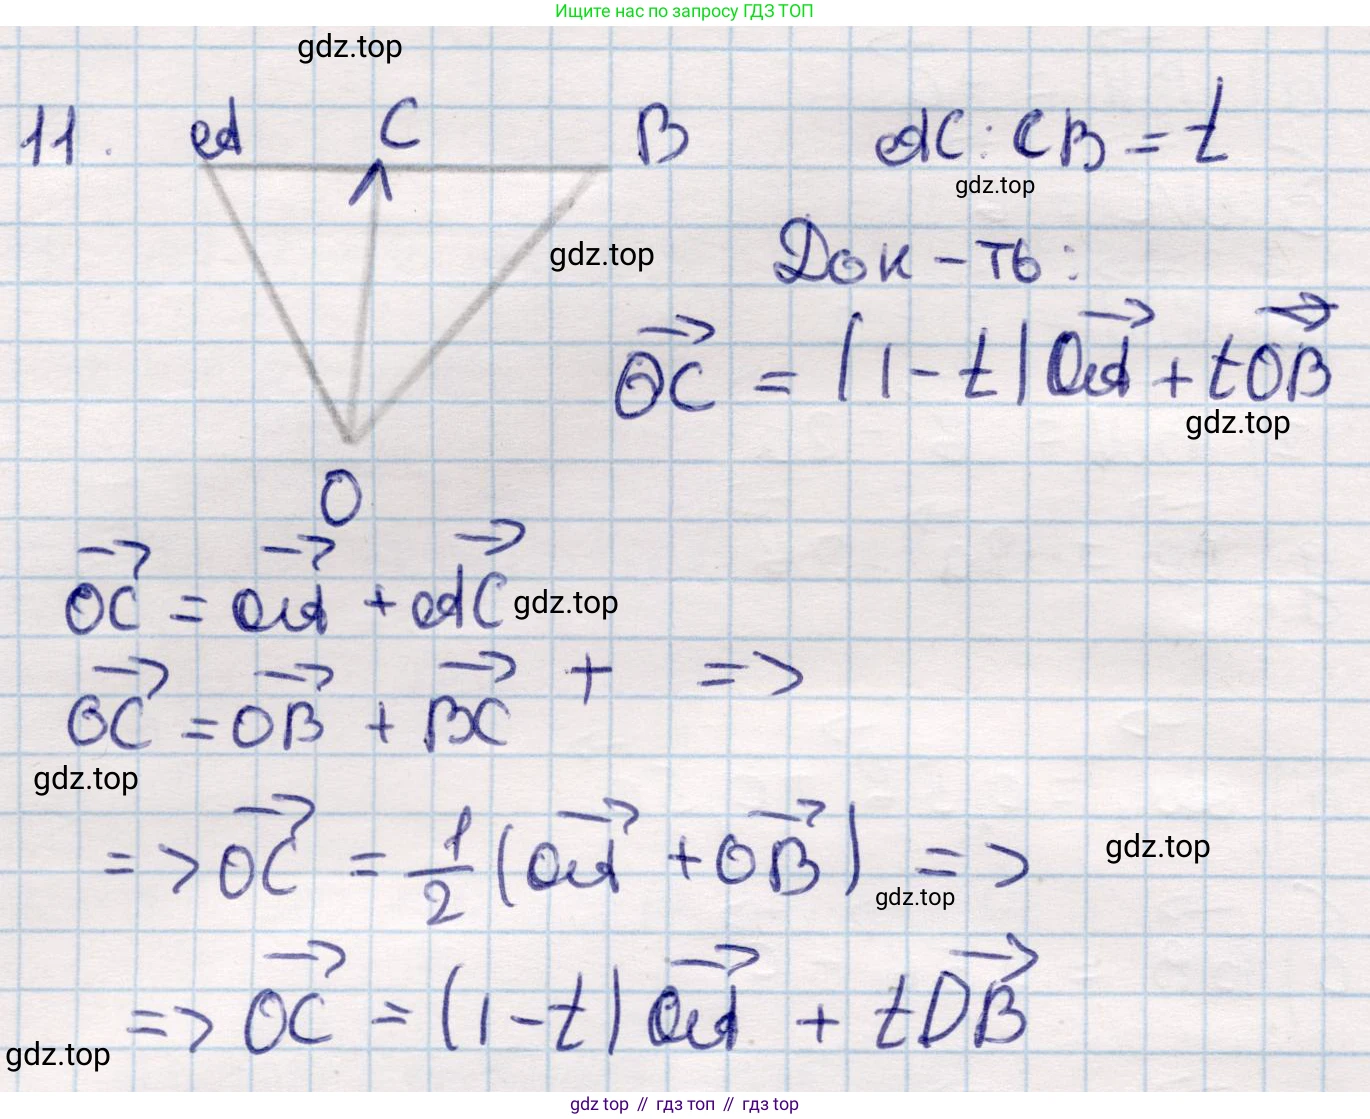 Ищите нас по запросу ГДЗ ТОП
gdz.top
11. A C B AC : CB = t
gdz.top
Док-ть:
gdz.top
OC = (1 - t) OA + t OB
gdz.top
O
OC = OA + AC
gdz.top
OC = OB + BC + =>
gdz.top
=> OC = 1/2 (OA + OB) =>
gdz.top
gdz.top
=> OC = (1 - t) OA + t DB
gdz.top
gdz топ // гдз топ // гдз top